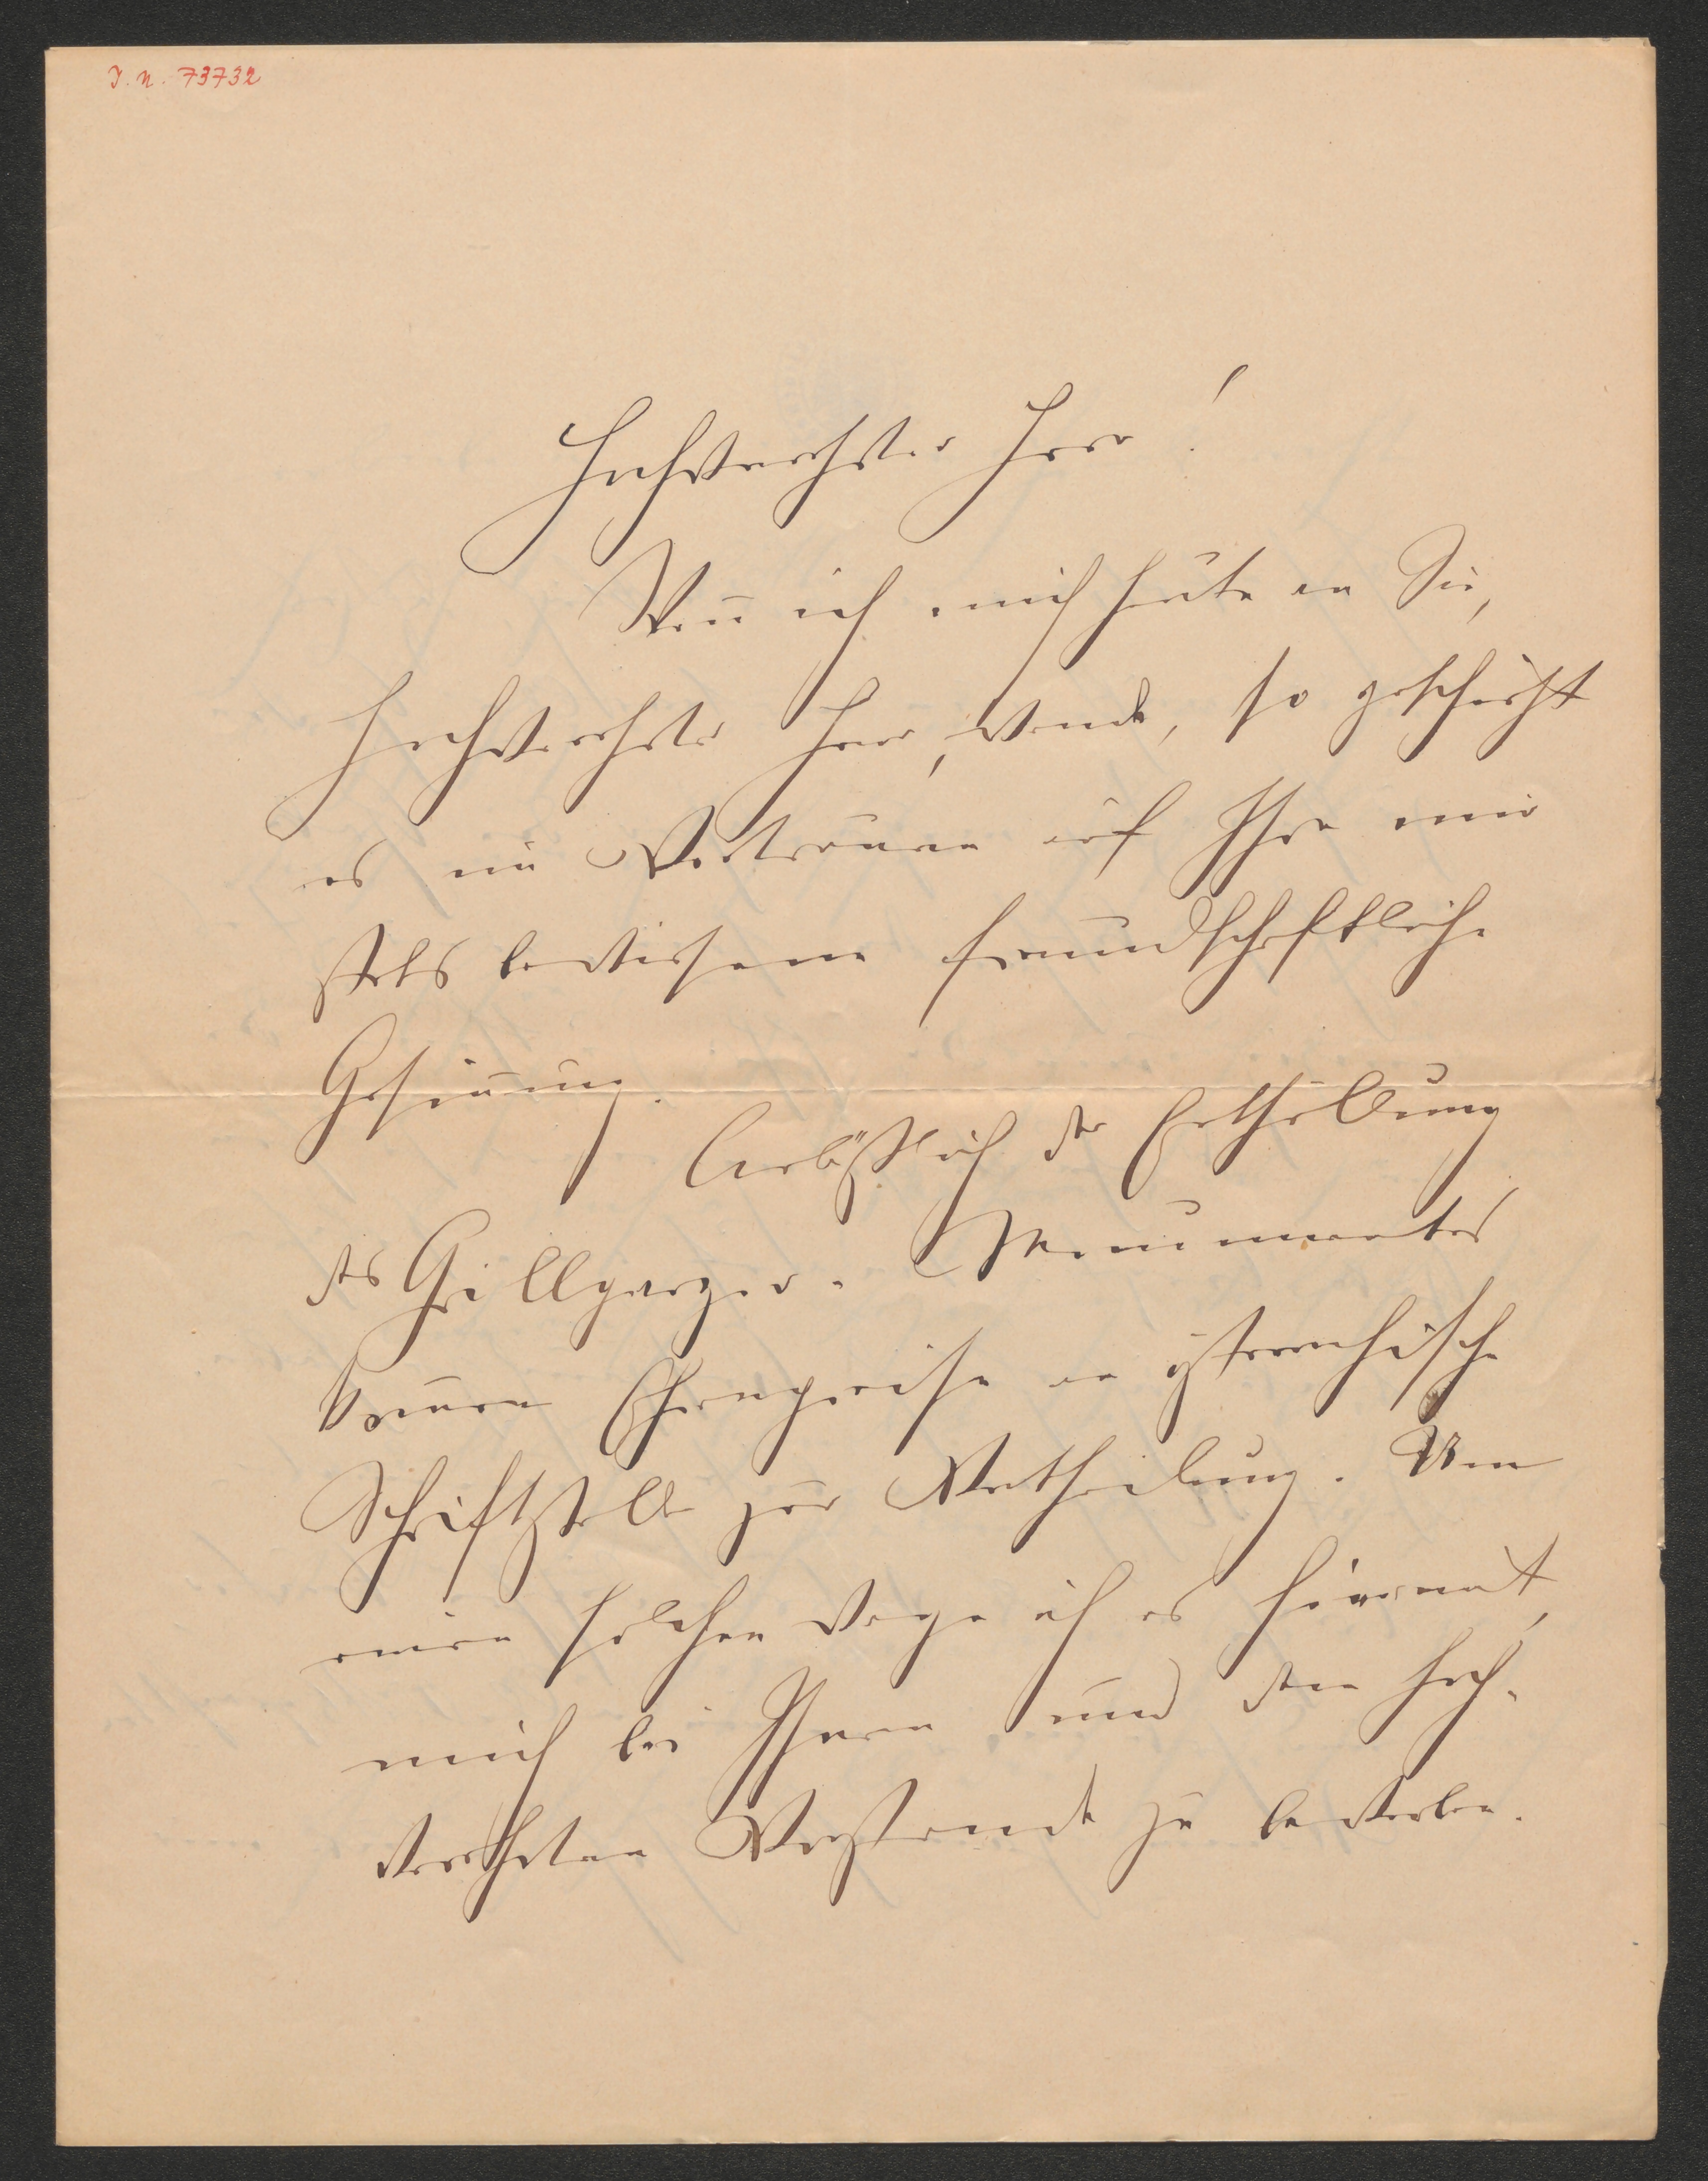 I. N. 73732
Hochverehrter Herr!
Wenn ich mich heute an Sie,
hochverehrter Herr, wende, so geschieht
es im Vertrauen auf Ihre mir
stets bewiesene freundschaftliche
Gesinnung.
Anläßlich der Enthüllung
des Grillparzer-Monumentes
kommen Ehrenpreise an österreichische
Schriftsteller zur Vertheilung. Um
einen solchen wage ich es hiermit,
mich bei Ihnen und dem hoch-
verehrten Vorstande zu bewerben.